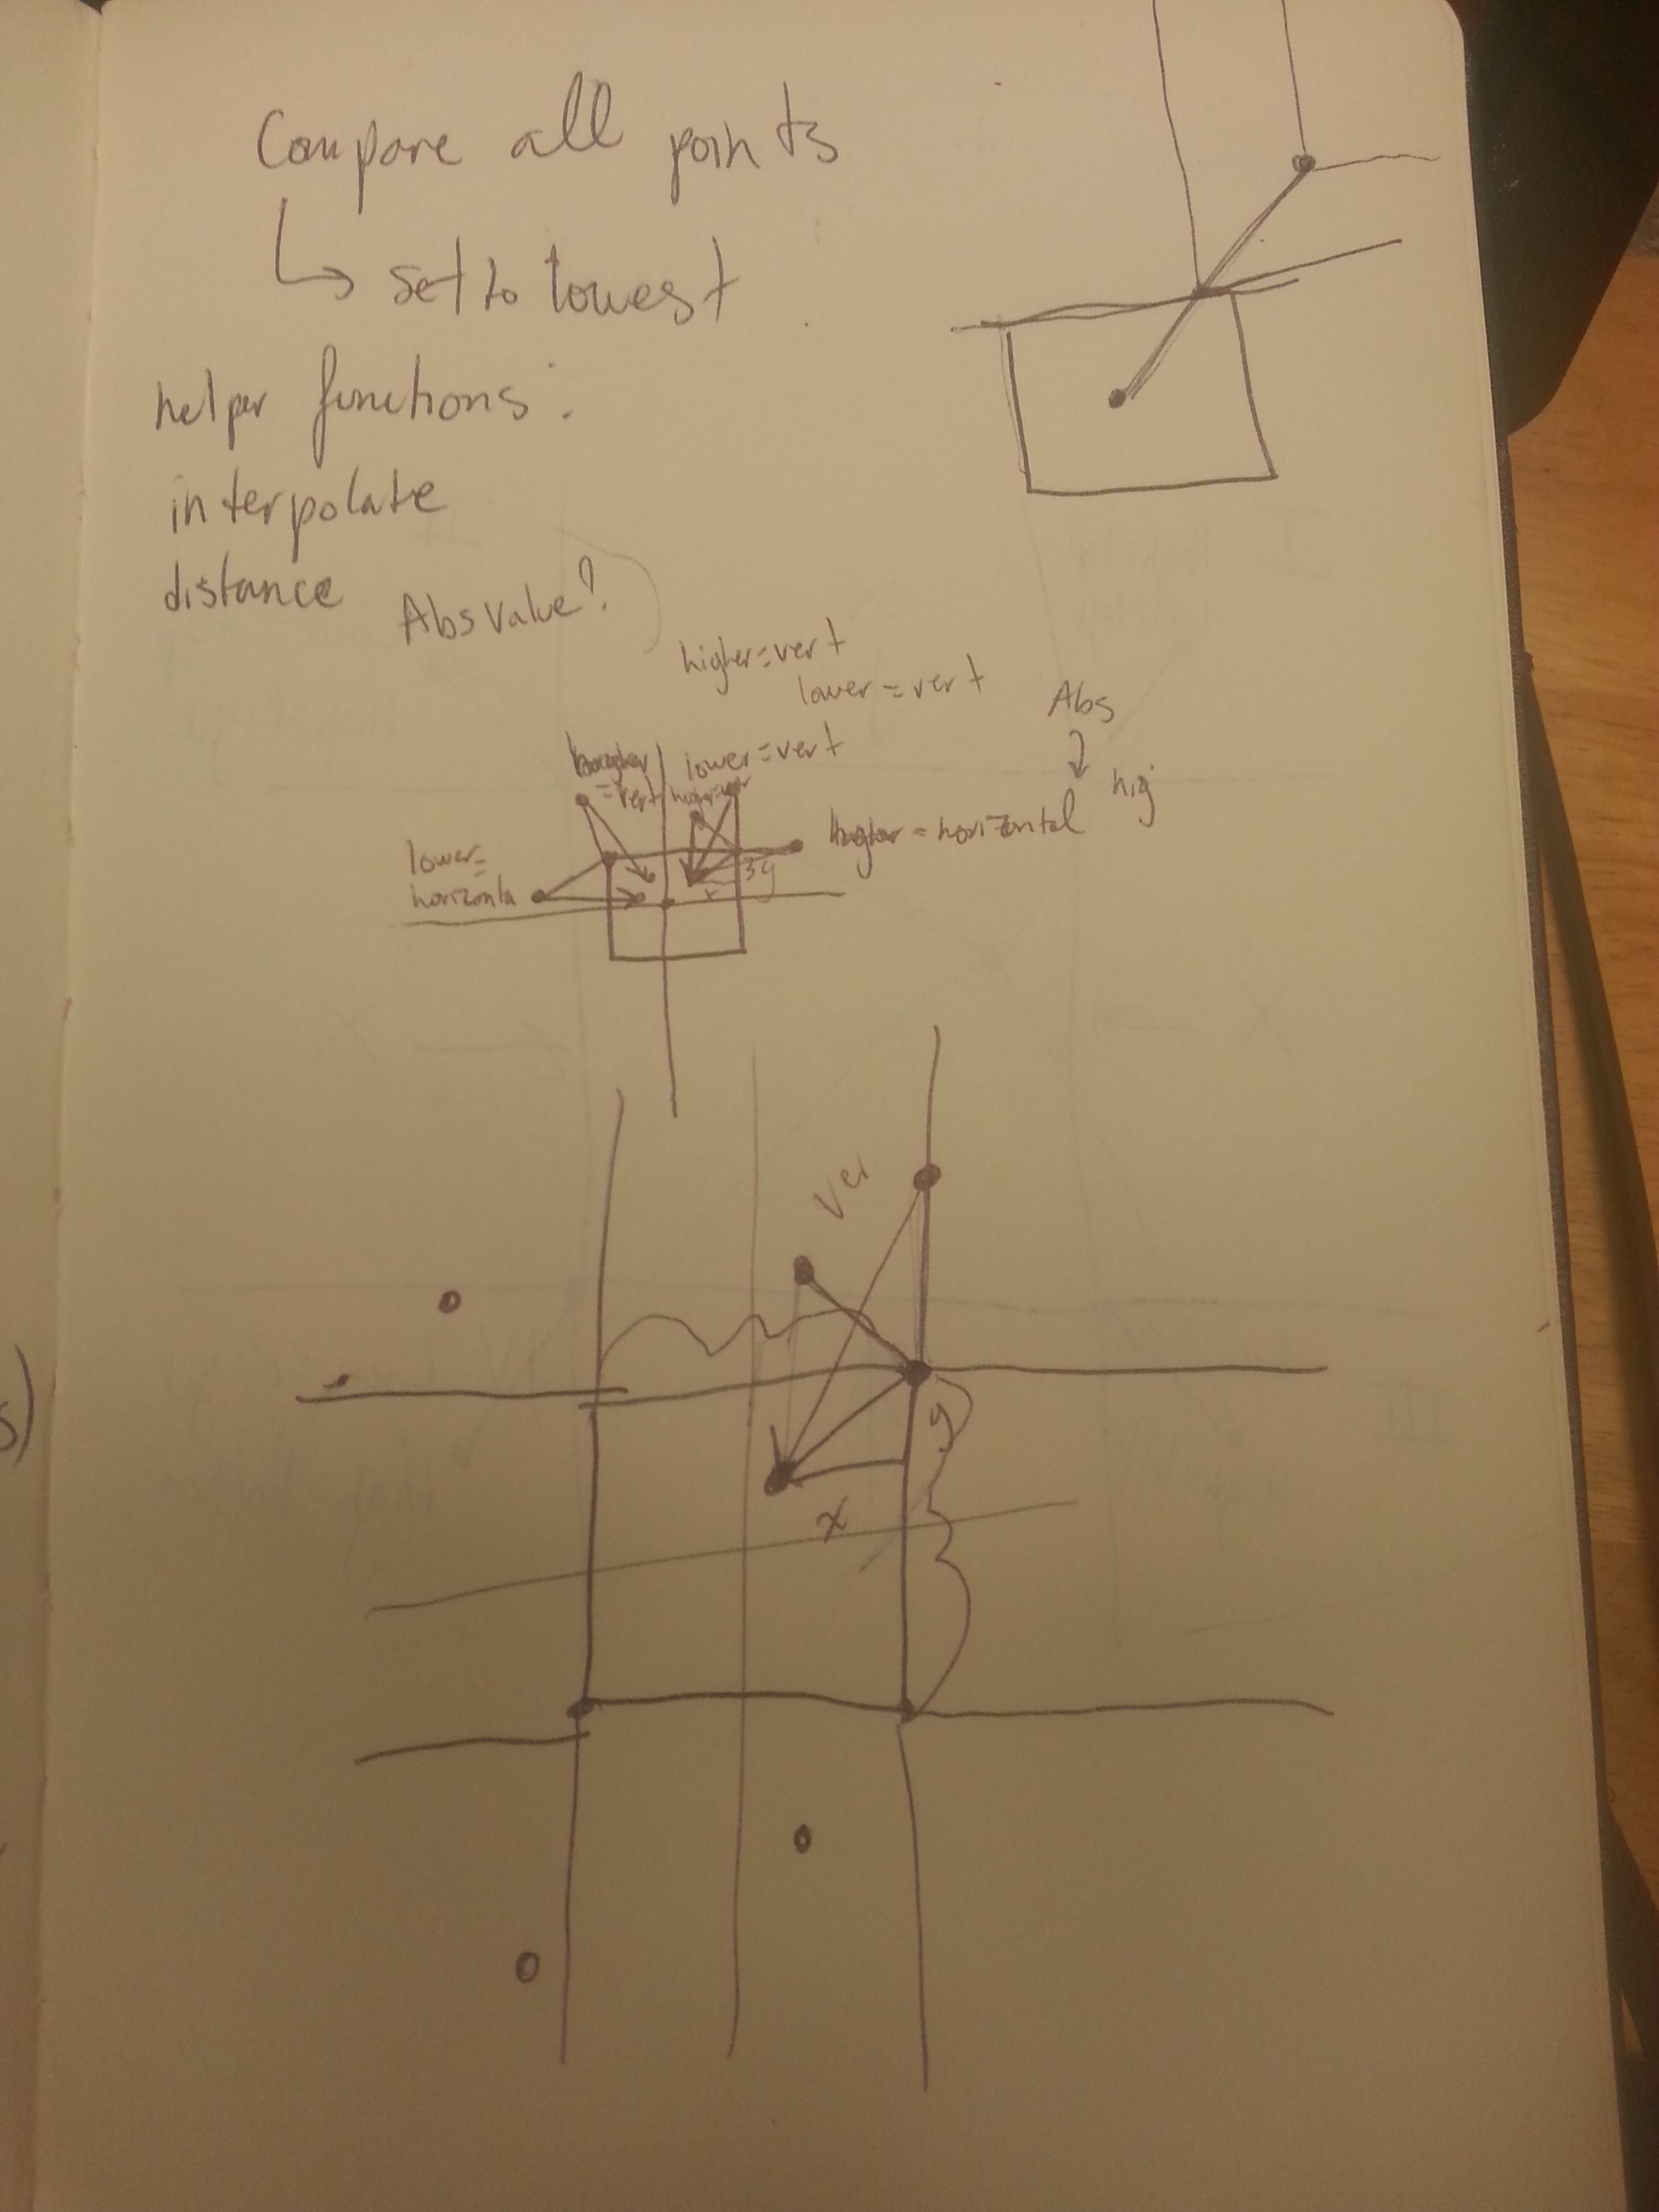 Compare all points
set to lowest
helper functions:
interpolate
distance
Abs value?
higher=vert
lower=vert
Abs
hig
lower=vert
=vert
= horizontal
lower=
horizonta
x
y
Vel
y
x
s)